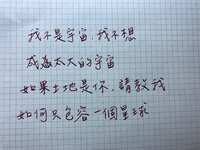 我不是宇宙，我不想
成為太大的宇宙
如果土地是你，請教我
如何只包容一個星球